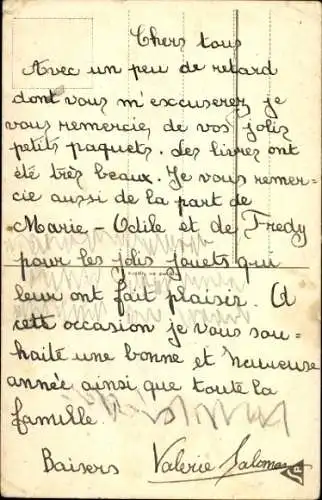 Chers tous
Avec un peu de retard
dont vous m'excuserez je
vous remercie, de vos jolis
petits paquets. Les livres ont
été très beaux. Je vous remer-
cie aussi de la part de
Marie-Odile et de Fredy
pour les jolis jouets qui
leur ont fait plaisir. A
cette occasion je vous sou-
haite une bonne et heureuse
année ainsi que toute la
famille.
Baisers Valerie Salomon